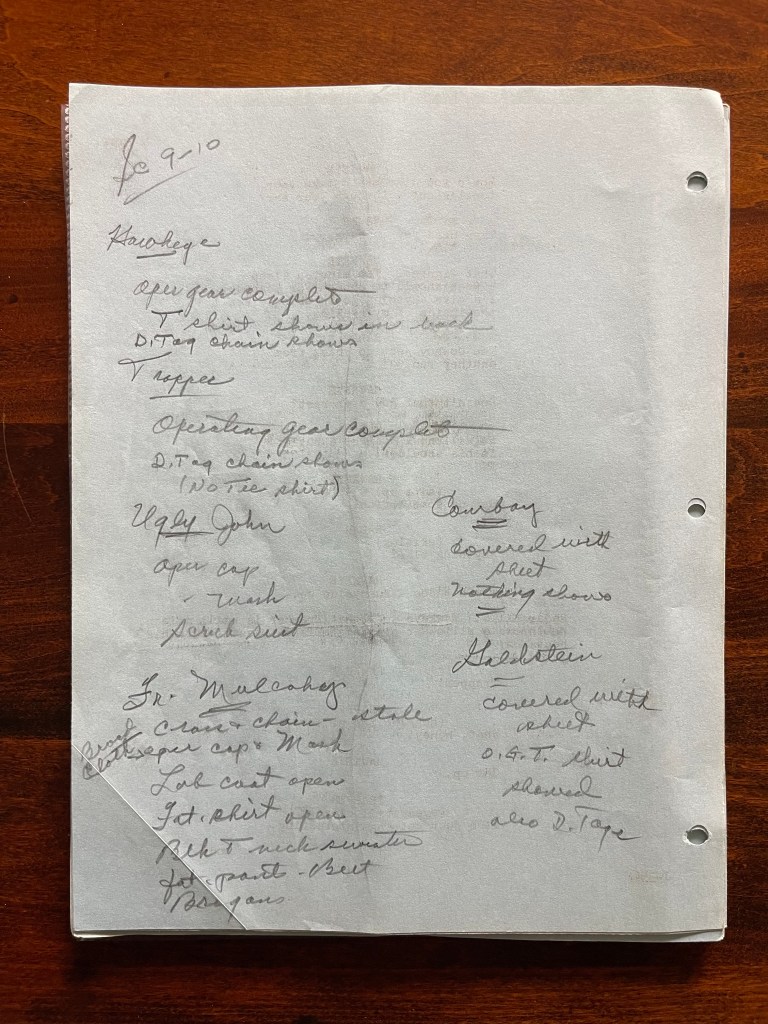 Sc 9-10
Hawkeye
oper gear complet
T shirt shows in back
D. Tag chain shows
Trapper
Operating gear complet
D. Tag chain shows
(No Tee shirt)
Ugly John
oper cap
- mask
scrub suit
Fr. Mulcahey
Cross & chain - stole
oper cap & Mask
Lab coat open
Fat. shirt open
Blk T neck sweater
fat. pants - Belt
Brogans
Cowboy
covered with
sheet
nothing shows
Goldstein
covered with
sheet
O.G.T. shirt
showed
also D. Tags